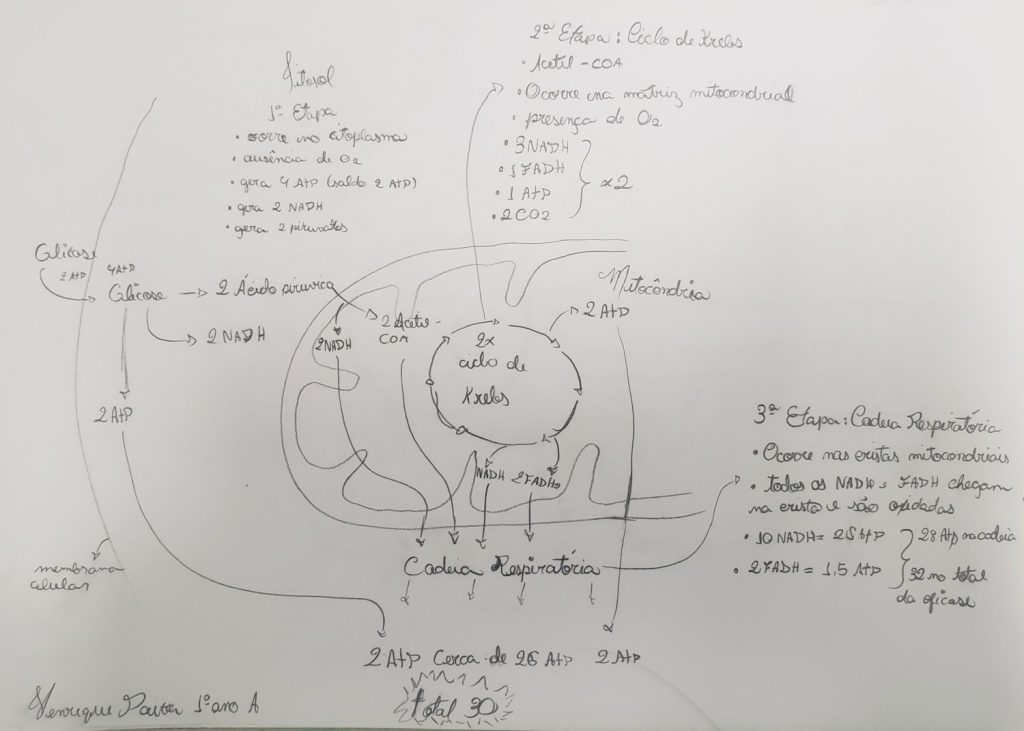 2ª Etapa: Ciclo de Krebs
• Acetil-COA
• Ocorre na matriz mitocondrial
• presença de O2
• 3NADH
• 1FADH
• 1 ATP
• 2CO2
x2
Citosol
1ª Etapa
• ocorre no citoplasma
• ausência de O2
• gera 4 ATP (saldo 2 ATP)
• gera 2 NADH
• gera 2 piruvatos
Glicose
2 ATP
4ATP
Glicose
2 Ácido pirúvica
2 NADH
2 ATP
Mitocôndria
2NADH
2 Acetil-
COA
2x
ciclo de
Krebs
2 ATP
NADH
2FADH2
3ª Etapa: Cadeia Respiratória
• Ocorre nas cristas mitocondriais
• todos os NADH e FADH chegam
na crista e são oxidadas
• 10NADH = 25 ATP
28 ATP na cadeia
• 2FADH = 1,5 ATP
32 no total
da glicose
membrana
celular
Cadeia Respiratória
2 ATP Cerca de 26 ATP 2 ATP
total 30
Henrique 1º ano A